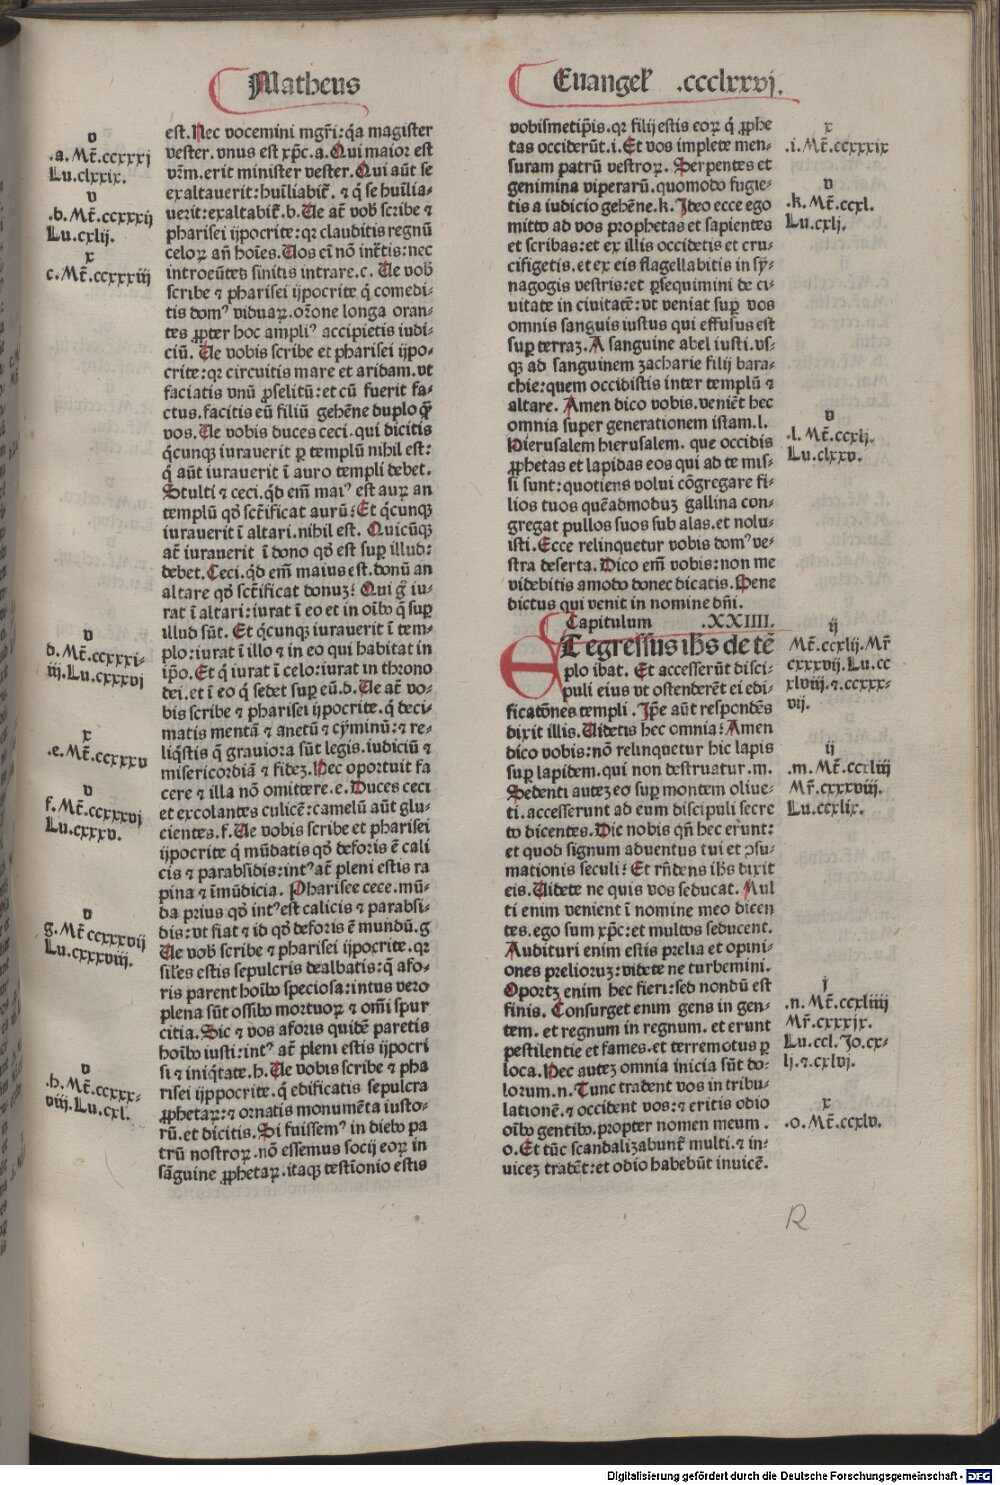 Matheus
Euangel᷒ .ccclxxvj.
v
.a.Mt̄.ccxxxj
Lu.clxxix.
v
.b.Mt̄.ccxxxij
Lu.cxlij.
x
c.Mt̄.ccxxxiij
v
d.Mt̄.ccxxxi-
iij.Lu.cxxxvj
x
.e.Mt̄.ccxxxv
v
f.Mt̄.ccxxxvj
Lu.cxxxv.
v
g.Mt̄ ccxxxvij
Lu.cxxxviij.
v
.h.Mt̄.ccxxx-
viij.Lu.cxl.
est. Nec vocemini mgr̄i: qꝛa magister
vester. vnus est xp̄c. a. Qui maior est
vr̄m. erit minister vester. Qui aūt se
exaltauerit: hūiliabit᷒. ⁊ q̇ se hūilia-
uerit: exaltabit᷒. b. Ue at̄ vob̄ scribe ⁊
pharisei ijpocrite: qꝛ clauditis regnū
celoꝝ an̄ hoīes. Uos eī nō int̄tis: nec
introeūtes sinitis intrare. c. Ue vob̄
scribe ⁊ pharisei ijpocrite q̇ comedi-
tis domꝰ viduaꝝ. or̄one longa oran-
tes ꝓpter hoc ampliꝰ accipietis iudi-
ciū. Ue vobis scribe et pharisei ijpo-
crite: qꝛ circuitis mare et aridam. vt
faciatis vnū ꝓselitū: et cū fuerit fa-
ctus. facitis eū filiū gehēne duplo q̄
vos. Ue vobis duces ceci. qui dicitis
q̇cunqꝫ iurauerit ꝑ templū nihil est:
q̇ aūt iurauerit ī auro templi debet.
Stulti ⁊ ceci. qd̄ em̄ maiꝰ est auꝝ an
templū qd̄ sct̄ificat aurū: Et q̇cunqꝫ
iurauerit ī altari. nihil est. Quicūqꝫ
at̄ iurauerit ī dono qd̄ est suꝑ illud:
debet. Ceci. qd̄ em̄ maius est. donū an
altare qd̄ sct̄ificat donuꝫ: Qui g̊ iu-
rat ī altari: iurat ī eo et in oībꝰ q̄ suꝑ
illud sūt. Et q̇cunqꝫ iurauerit ī tem-
plo: iurat ī illo ⁊ in eo qui habitat in
ip̄o. Et q̇ iurat ī celo: iurat in throno
dei. et ī eo q̇ sedet suꝑ eū. d. Ue at̄ vo-
bis scribe ⁊ pharisei ijpocrite. q̇ deci-
matis mentā ⁊ anetū ⁊ cyminū: ⁊ re-
liq̇stis q̄ grauiora sūt legis. iudiciū ⁊
misericordiā ⁊ fideꝫ. Hec oportuit fa
cere ⁊ illa nō omittere. e. Duces ceci
et excolantes culicē: camelū aūt glu-
cientes. f. Ue vobis scribe et pharisei
ijpocrite q̇ mūdatis qd̄ deforis ē cali
cis ⁊ parabsidis: intꝰ at̄ pleni estis ra
pina ⁊ īmūdicia. Pharisee cece. mū-
da prius qd̄ intꝰ est calicis ⁊ parabsi-
dis: vt fiat ⁊ id qd̄ deforis ē mundū. g
Ue vob̄ scribe ⁊ pharisei ijpocrite. qꝛ
sil̄es estis sepulcris dealbatis: q̄ afo-
ris parent hoībꝰ speciosa: intus vero
plena sūt ossibꝰ mortuoꝝ ⁊ om̄i spur
citia. Sic ⁊ vos aforis quidē paretis
hoībꝰ iusti: intꝰ at̄ pleni estis ijpocri
si ⁊ iniq̇tate. h. Ue vobis scribe ⁊ pha
risei ijppocrite. q̇ edificatis sepulcra
ꝓphetaꝝ: ⁊ ornatis monumēta iusto-
rū. et dicitis. Si fuissemꝰ in diebꝰ pa
trū nostroꝝ. nō essemus socij eoꝝ in
sāguine ꝓphetaꝝ. itaqꝫ testīonio estis
vobismetip̄is. qꝛ filij estis eoꝝ q̇ ꝓphe
tas occiderūt. i. Et vos implete men-
suram patrū vestroꝝ. Serpentes et
genimina viperarū. quomodo fugie-
tis a iudicio gehēne. k. Ideo ecce ego
mitto ad vos prophetas et sapientes
et scribas: et ex illis occidetis et cru-
cifigetis. et ex eis flagellabitis in sy-
nagogis vestris: et ꝑsequimini de ci-
uitate in ciuitatē: vt veniat suꝑ vos
omnis sanguis iustus qui effusus est
suꝑ terraꝫ. A sanguine abel iusti. vs-
qꝫ ad sanguinem zacharie filij bara-
chie: quem occidistis inter templū ⁊
altare. Amen dico vobis. veniēt hec
omnia super generationem istam. l.
Hierusalem hierusalem. que occidis
ꝓphetas et lapidas eos qui ad te mis-
si sunt: quotiens volui cōgregare fi-
lios tuos quēadmoduꝫ gallina con-
gregat pullos suos sub alas. et nolu-
isti. Ecce relinquetur vobis domꝰ ve-
stra deserta. Dico em̄ vobis: non me
videbitis amodo donec dicatis. Bene
dictus qui venit in nomine dn̄i.
Capitulum .XXIIII.
ET egressus ih̄s de tē
plo ibat. Et accesserūt disci-
puli eius vt ostenderēt ei edi-
ficatōnes templi. Ip̄e aūt respondēs
dixit illis. Uidetis hec omnia: Amen
dico vobis: nō relinquetur hic lapis
suꝑ lapidem. qui non destruatur. m.
Sedenti auteꝫ eo suꝑ montem oliue-
ti. accesserunt ad eum discipuli secre
to dicentes. Dic nobis qn̄ hec erunt:
et quod signum aduentus tui et ↄsu-
mationis seculi: Et rn̄dens ih̄s dixit
eis. Uidete ne quis vos seducat. Mul
ti enim venient ī nomine meo dicen
tes. ego sum xp̄c: et multos seducent.
Audituri enim estis prelia et opini-
ones prelioruꝫ: videte ne turbemini.
Oportꝫ enim hec fieri: sed nondū est
finis. Consurget enim gens in gen-
tem. et regnum in regnum. et erunt
pestilentie et fames. et terremotus ꝑ
loca. Hec auteꝫ omnia inicia sūt do-
lorum. n. Tunc tradent vos in tribu-
lationē. ⁊ occident vos: ⁊ eritis odio
oībꝰ gentibꝰ. propter nomen meum.
o. Et tūc scandalizabunt᷒ multi. ⁊ in-
uiceꝫ tradēt: et odio habebūt inuicē.
x
.i.Mt̄.ccxxxix
v
.k.Mt̄.ccxl.
Lu.cxlj.
v
.l.Mt̄.ccxlj.
Lu.clxxv.
ij
Mt̄.ccxlij.Mr̄
cxxxvij.Lu.cc
xlviij.⁊.ccxxx-
vij.
ij
.m.Mt̄.ccxliij
Mr̄.cxxxviij.
Lu.ccxlix.
j
.n.Mt̄.ccxliiij
Mr̄.cxxxjx.
Lu.ccl.Jo.cx-
lj.⁊.cxlvj.
x
.o.Mt̄.ccxlv.
R
Digitalisierung gefördert durch die Deutsche Forschungsgemeinschaft - DFG